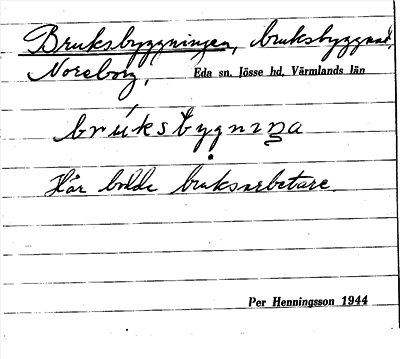 Bruksbyggningen, bruksbyggnad,
Noreborg, Eda sn. Jösse hd, Värmlands län
brúksbygnıŋa
Här bodde bruksarbetare.
Per Henningsson 1944